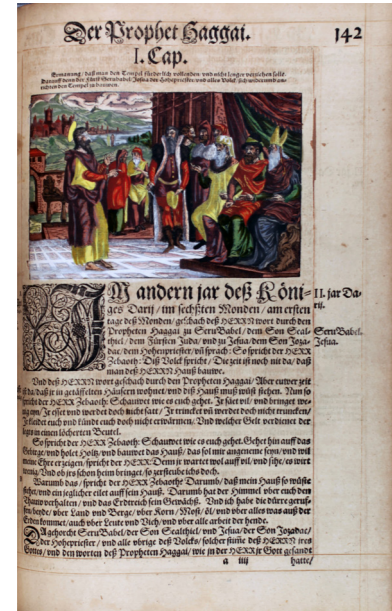 Der Prophet Haggai.
142
I. Cap.
Ermanung/ daß man den Tempel fürderlich vollenden und nicht lenger verziehen solle.
Darauff denn der Fürst Serubabel/ Josua der Hohepriester/ und alles Volck sich
den Tempel zu bauwen.
IM andern jar deß Köni-
ges Darij/ im sechsten Monden/ am ersten
tage deß Monden/ geschach deß HERRN wort durch den
Propheten Haggai zu SeruBabel/ dem Son Seal-
thiel/ dem Fürsten Juda/ und zu Jesua/ dem Son Joza-
dac/ dem Hohenpriester/ uñ sprach: So spricht der HERR
Zebaoth: Diß Volck spricht/ Die zeit ist noch nit da/ daß
man deß HERRN Hauß bauwe.
II. jar Da-
rij.
SeruBabel.
Jesua.
Und deß HERRN wort geschach durch den Propheten Haggai/ Aber euwer zeit
ist da/ daß jr in getäfelten Häusern wohnet/ und diß Hauß muß wüst stehen. Nun so
spricht der HERR Zebaoth: Schauwet wie es euch gehet. Jr säet vil/ und bringet we-
nig eyn/ Jr esset und werdet doch nicht satt/ Jr trincket uñ werdet doch nicht truncken/
Jr kleidet euch und kündt euch doch nicht erwärmen. Und welcher Gelt verdienet der
legts in einen löcherten Beutel.
So spricht der HERR Zebaoth: Schauwet wie es euch gehet. Gehet hin auff das
Gebirge/ und holet Holtz/ und bauwet das Hauß/ das sol mir angeneme seyn/ und wil
meine Ehre erzeigen/ spricht der HERR. Denn jr wartet wol auff vil/ und sihe/ es wirt
wenig/ Und ob jrs schon heim bringet/ so zerstäube ichs doch.
Warumb das/ spricht der HERR Zebaoth? Darumb/ daß mein Hauß so wüste
stehet/ und ein jeglicher eilet auff sein Hauß. Darumb hat der Himmel uber euch den
Thauw verhalten/ und das Erdreich sein Gewächß. Und ich habe die dürre geruf-
fen/ beyde/ uber Land und Berge/ uber Korn/ Most/ öl/ und uber alles was auß der
Erden kommet/ auch uber Leute und Vieh/ und uber alle arbeit der hende.
DA gehorcht SeruBabel/ der Son Sealthiel/ und Jesua/ der Son Jozadac/
der Hohepriester/ und alle ubrige deß Volcks/ solcher stimme deß HERRN jres
Gottes/ und den worten deß Propheten Haggai/ wie jn der HERR jr Gott gesandt
a iiij
hatte/